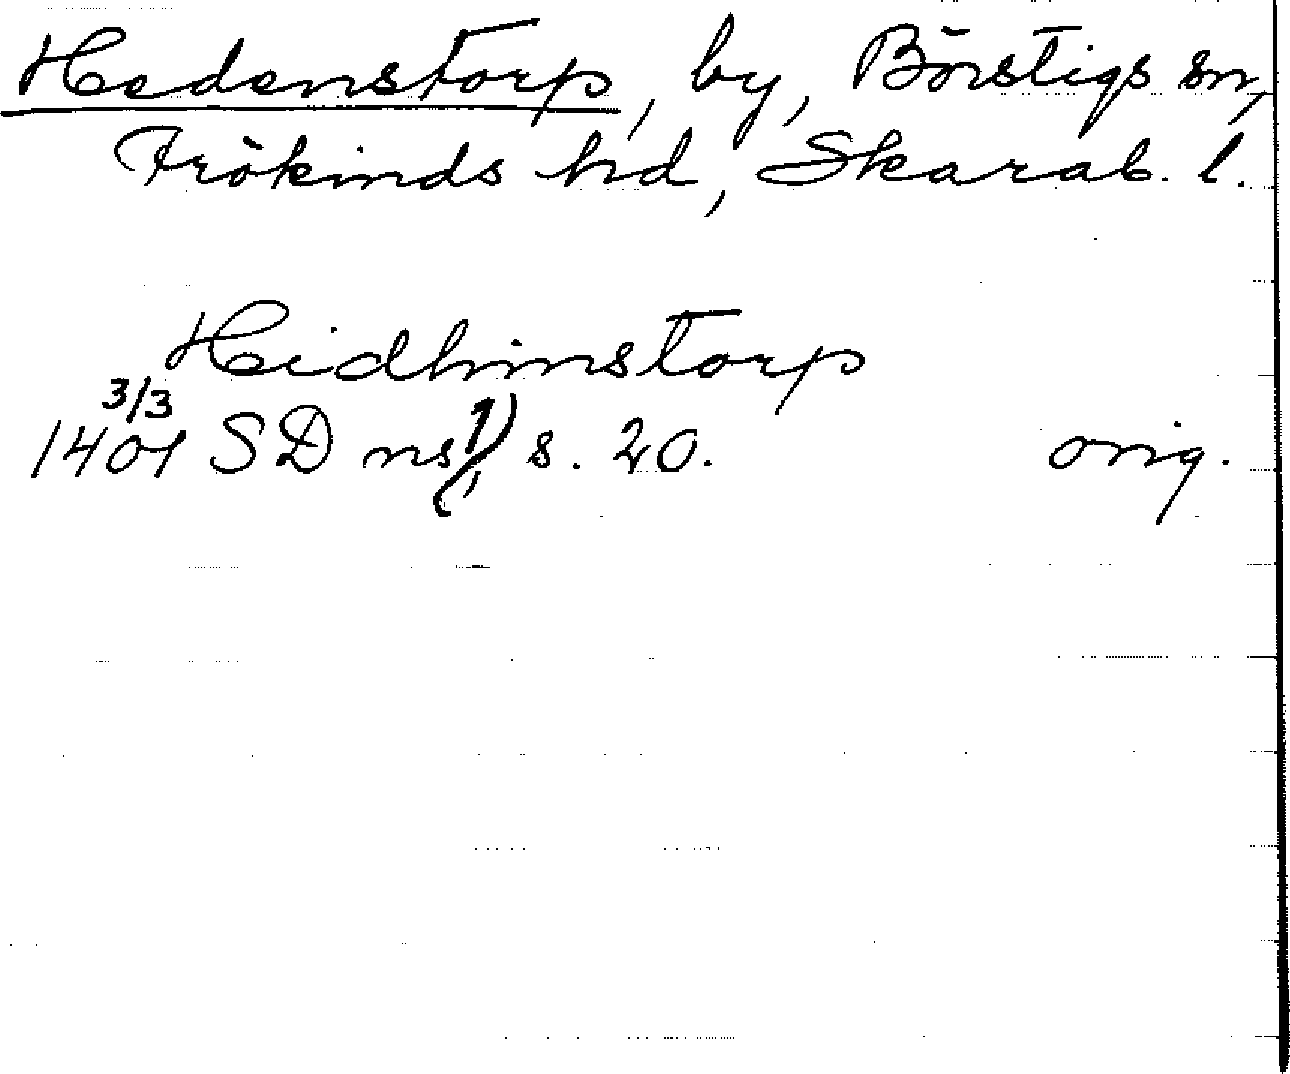 Hedenstorp, by, Börstigs sn,
Frökinds hd, Skarab. l.
Heidhinstorp
3/3
1401 SD ns 1, s. 20. orig.